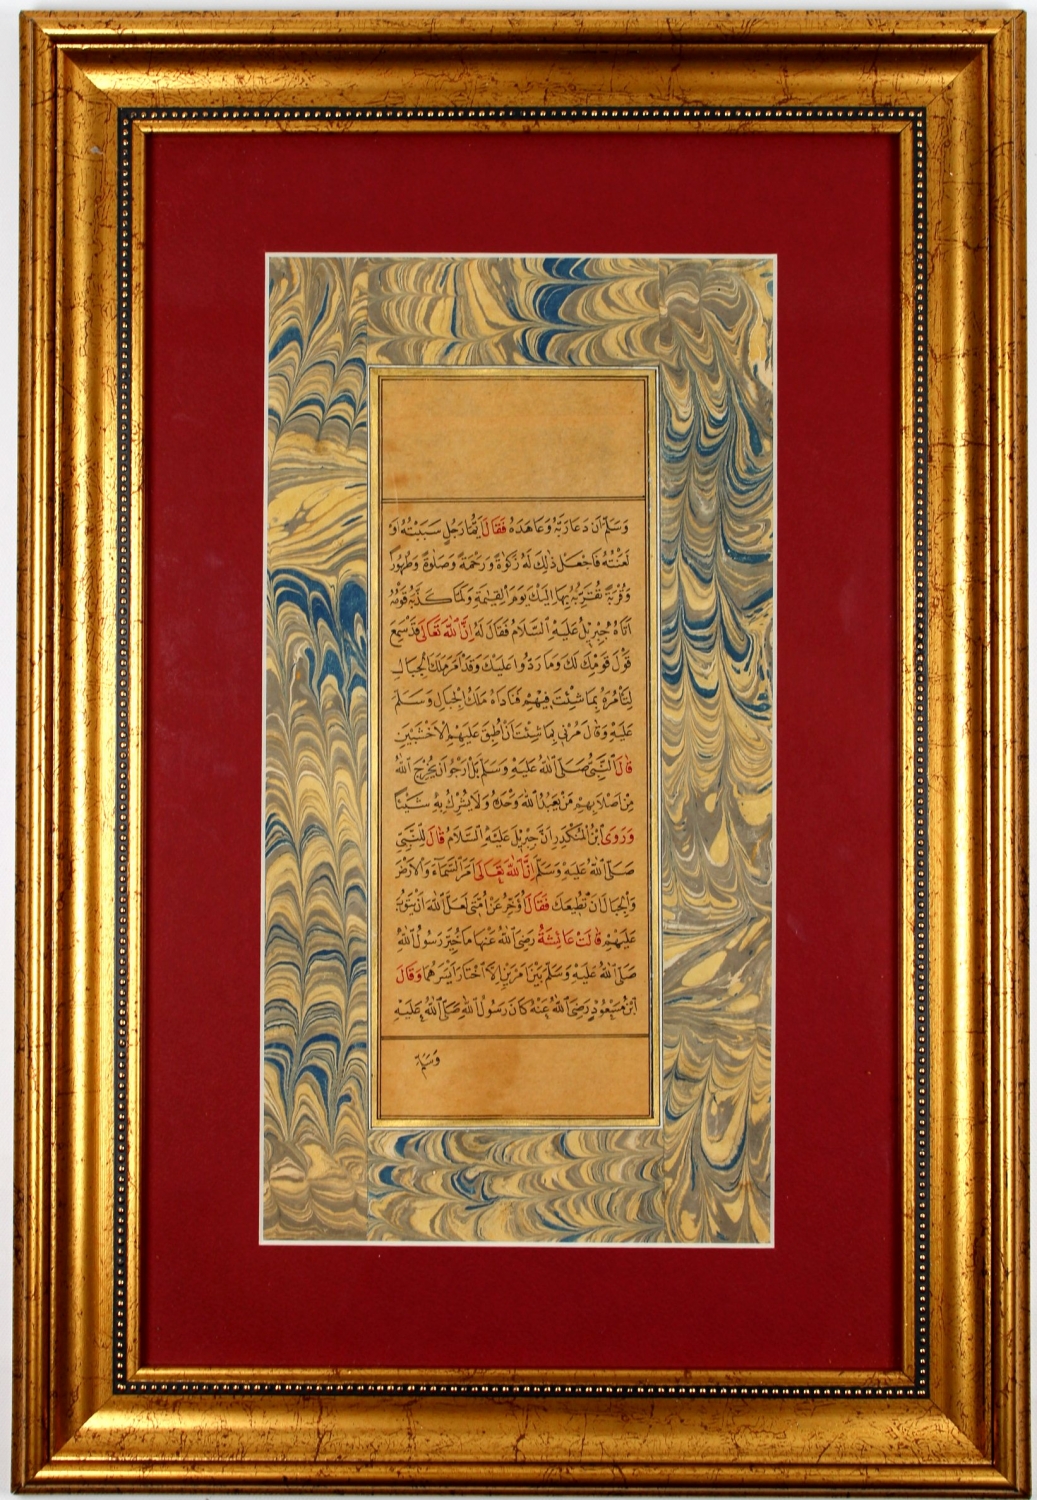 وَسَلَّمَ اَنْ دَعَا رَبَّهُ وَعَاهَدَهُ فَقَالَ اَيُّمَا رَجُلٍ سَبَبْتُهُ اَوْ
لَعَنْتُهُ فَاجْعَلْ ذٰلِكَ لَهُ زَكٰوةً وَرَحْمَةً وَصَلٰوةً وَطَهُورًا
وَقُرْبَةً تُقَرِّبُهُ بِهَا اِلَيْكَ يَوْمَ الْقِيٰمَةِ وَلَمَّا كَذَّبَهُ قَوْمُهُ
اَتَاهُ جِبْرِيْلُ عَلَيْهِ السَّلَامُ فَقَالَ لَهُ اِنَّ اللّٰهَ تَعَالٰى قَدْ سَمِعَ
قَوْلَ قَوْمِكَ لَكَ وَمَا رَدُّوا عَلَيْكَ وَقَدْ اَمَرَ مَلَكَ الْجِبَالِ
لِتَأْمُرَهُ بِمَا شِئْتَ فِيْهِمْ فَنَادَاهُ مَلَكُ الْجِبَالِ وَسَلَّمَ
عَلَيْهِ وَقَالَ مُرْنِي بِمَا شِئْتَ اَنْ اُطْبِقَ عَلَيْهِمُ الْاَخْشَبَيْنِ
قَالَ النَّبِيُّ صَلَّى اللّٰهُ عَلَيْهِ وَسَلَّمَ بَلْ اَرْجُو اَنْ يُخْرِجَ اللّٰهُ
مِنْ اَصْلَابِهِمْ مَنْ يَعْبُدُ اللّٰهَ وَحْدَهُ وَلَا يُشْرِكُ بِهِ شَيْئًا
وَرَوَى ابْنُ الْمُنْكَدِرِ اَنَّ جِبْرِيْلَ عَلَيْهِ السَّلَامُ قَالَ لِلنَّبِيِّ
صَلَّى اللّٰهُ عَلَيْهِ وَسَلَّمَ اِنَّ اللّٰهَ تَعَالٰى اَمَرَ السَّمَاءَ وَالْاَرْضَ
وَالْجِبَالَ اَنْ تُطِيعَكَ فَقَالَ اُؤَخِّرُ عَنْ اُمَّتِي لَعَلَّ اللّٰهَ اَنْ يَتُوبَ
عَلَيْهِمْ قَالَتْ عَائِشَةُ رَضِيَ اللّٰهُ عَنْهَا مَا خُيِّرَ رَسُولُ اللّٰهِ
صَلَّى اللّٰهُ عَلَيْهِ وَسَلَّمَ بَيْنَ اَمْرَيْنِ اِلَّا اخْتَارَ اَيْسَرَهُمَا وَقَالَ
ابْنُ مَسْعُودٍ رَضِيَ اللّٰهُ عَنْهُ كَانَ رَسُولُ اللّٰهِ صَلَّى اللّٰهُ عَلَيْهِ
وَسَلَّمَ